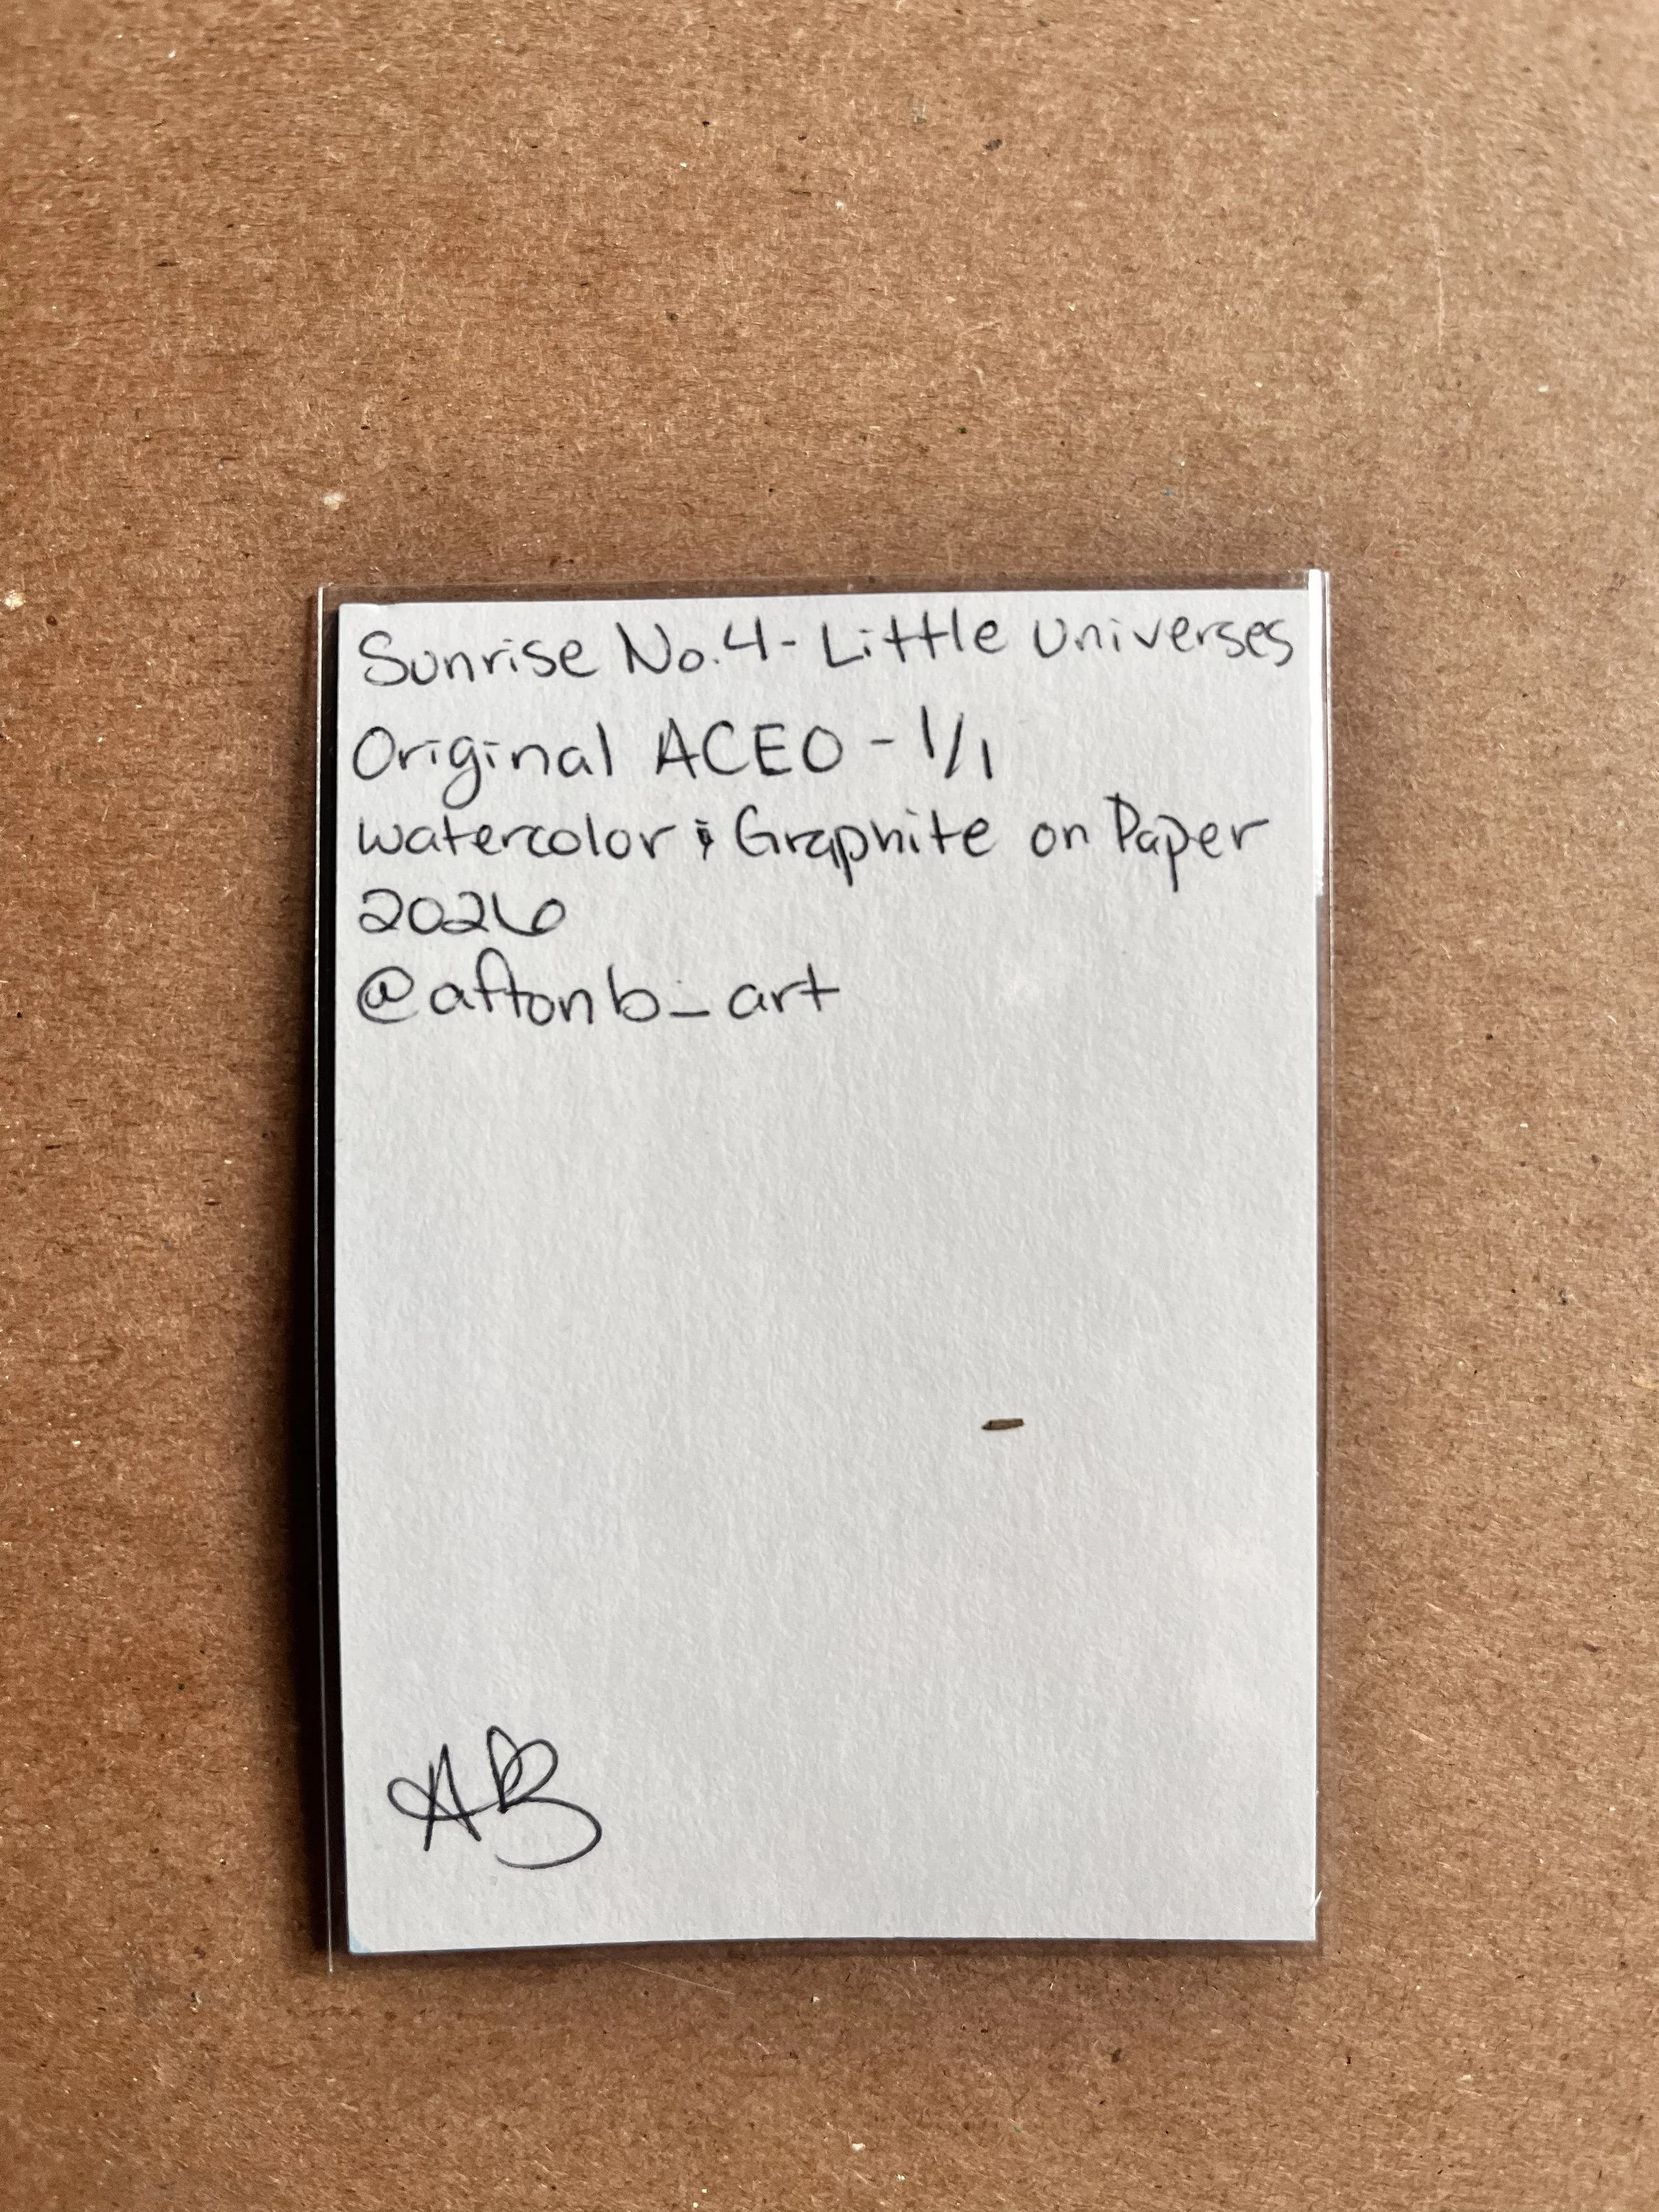 Sunrise No.4- Little Universes
Original ACEO - 1/1
watercolor & Graphite on Paper
2026
@aftonb_art
AB